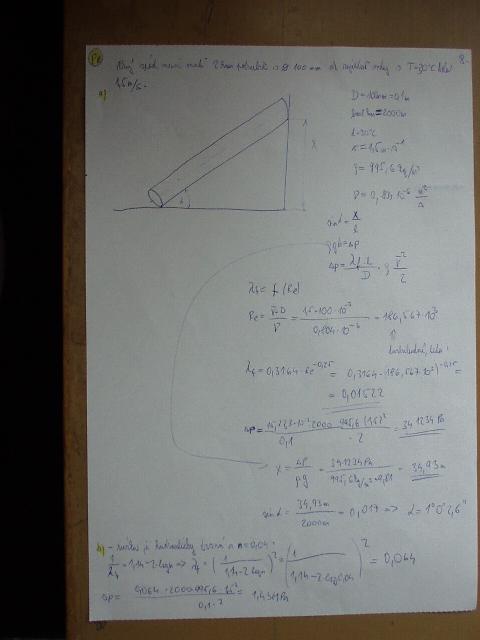 Př
8.
Jaký spád musí mít 2 km potrubí o ø 100 mm, má rychlost vody o T=30°C
1,5 m/s.
a)
D = 100mm = 0,1m
l = 2km = 2000m
t = 30°C
v = 1,5 m·s⁻¹
ρ = 995,6 kg/m³
ν = 0,804·10⁻⁶ m²/s
x
α
sin α = x/l
ρgh = Δp
Δp = λf·L/D · ρ v²/2
λf = f(Re)
Re = v·D/ν = 1,5·100·10⁻³/0,804·10⁻⁶ = 186,567·10³
turbulentní
λf = 0,3164·Re⁻⁰,²⁵ = 0,3164·(186,567·10³)⁻⁰,²⁵ =
= 0,01522
Δp = 15,223·10⁻³·2000·995,6·(1,5)²/0,1·2 = 341234 Pa
x = Δp/ρg = 341234 Pa/995,6 kg/m³·9,81 = 34,93m
sin α = 34,93m/2000m = 0,017 => α = 1°0'2,6"
b) - je hydraulicky drsná a n=0,04
1/√λf = 1,14-2·log n => λf = (1/1,14-2·log n)² = (1/1,14-2·log 0,04)² = 0,064
Δp = 0,064·2000·995,6·1,5²/0,1·2 = 1,43 MPa